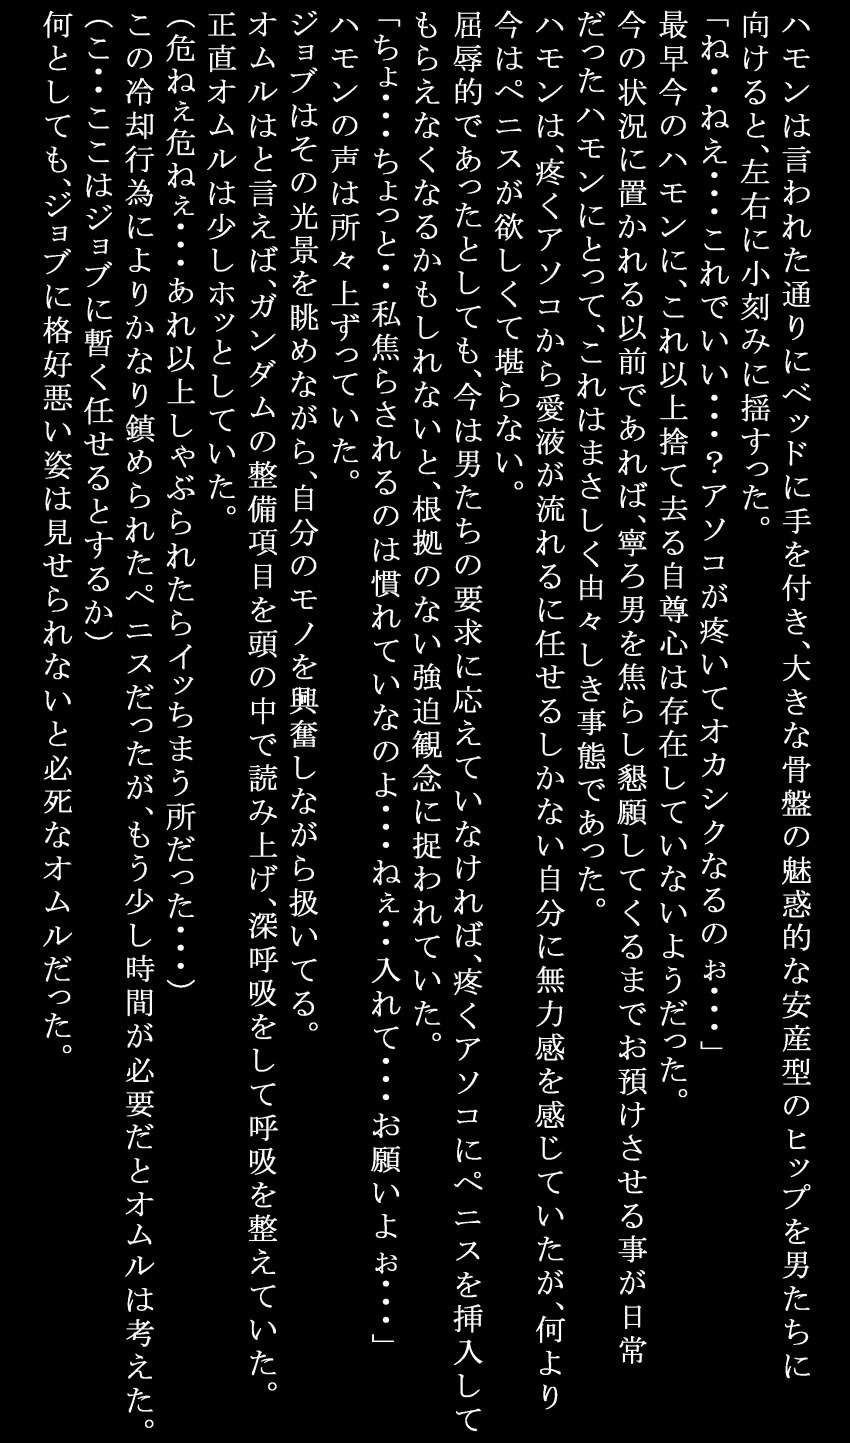 ハモンは言われた通りにベッドに手を付き、大きな骨盤の魅惑的な安産型のヒップを男たちに
向けると、左右に小刻みに揺すった。
「ね・・ねえ・・・これでいい・・・？アソコが疼いてオカシクなるのぉ・・・」
最早今のハモンに、これ以上捨て去る自尊心は存在していないようだった。
今の状況に置かれる以前であれば、寧ろ男を焦らし懇願してくるまでお預けさせる事が日常
だったハモンにとって、これはまさしく由々しき事態であった。
ハモンは、疼くアソコから愛液が流れるに任せるしかない自分に無力感を感じていたが、何より
今はペニスが欲しくて堪らない。
屈辱的であったとしても、今は男たちの要求に応えていなければ、疼くアソコにペニスを挿入して
もらえなくなるかもしれないと、根拠のない強迫観念に捉われていた。
「ちょ・・・ちょっと・・私焦らされるのは慣れていなのよ・・・ねぇ・・入れて・・・お願いよぉ・・・」
ハモンの声は所々上ずっていた。
ジョブはその光景を眺めながら、自分のモノを興奮しながら扱いてる。
オムルはと言えば、ガンダムの整備項目を頭の中で読み上げ、深呼吸をして呼吸を整えていた。
正直オムルは少しホッとしていた。
（危ねぇ危ねぇ・・・あれ以上しゃぶられたらイッちまう所だった・・・）
この冷却行為によりかなり鎮められたペニスだったが、もう少し時間が必要だとオムルは考えた。
（こ・・ここはジョブに暫く任せるとするか）
何としても、ジョブに格好悪い姿は見せられないと必死なオムルだった。